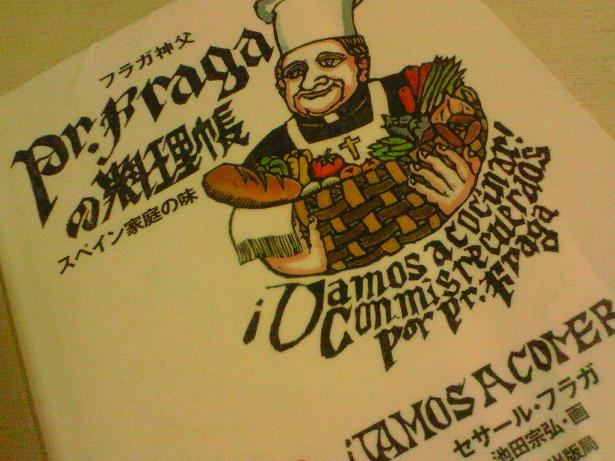 フラガ神父
Pr.Fraga
の料理帳
スペイン家庭の味
¡Vamos a cocinar!
Con mis recuerdos
por Pr.Fraga
¡VAMOS A COMER
セサール・フラガ
池田宗弘・画
出版局